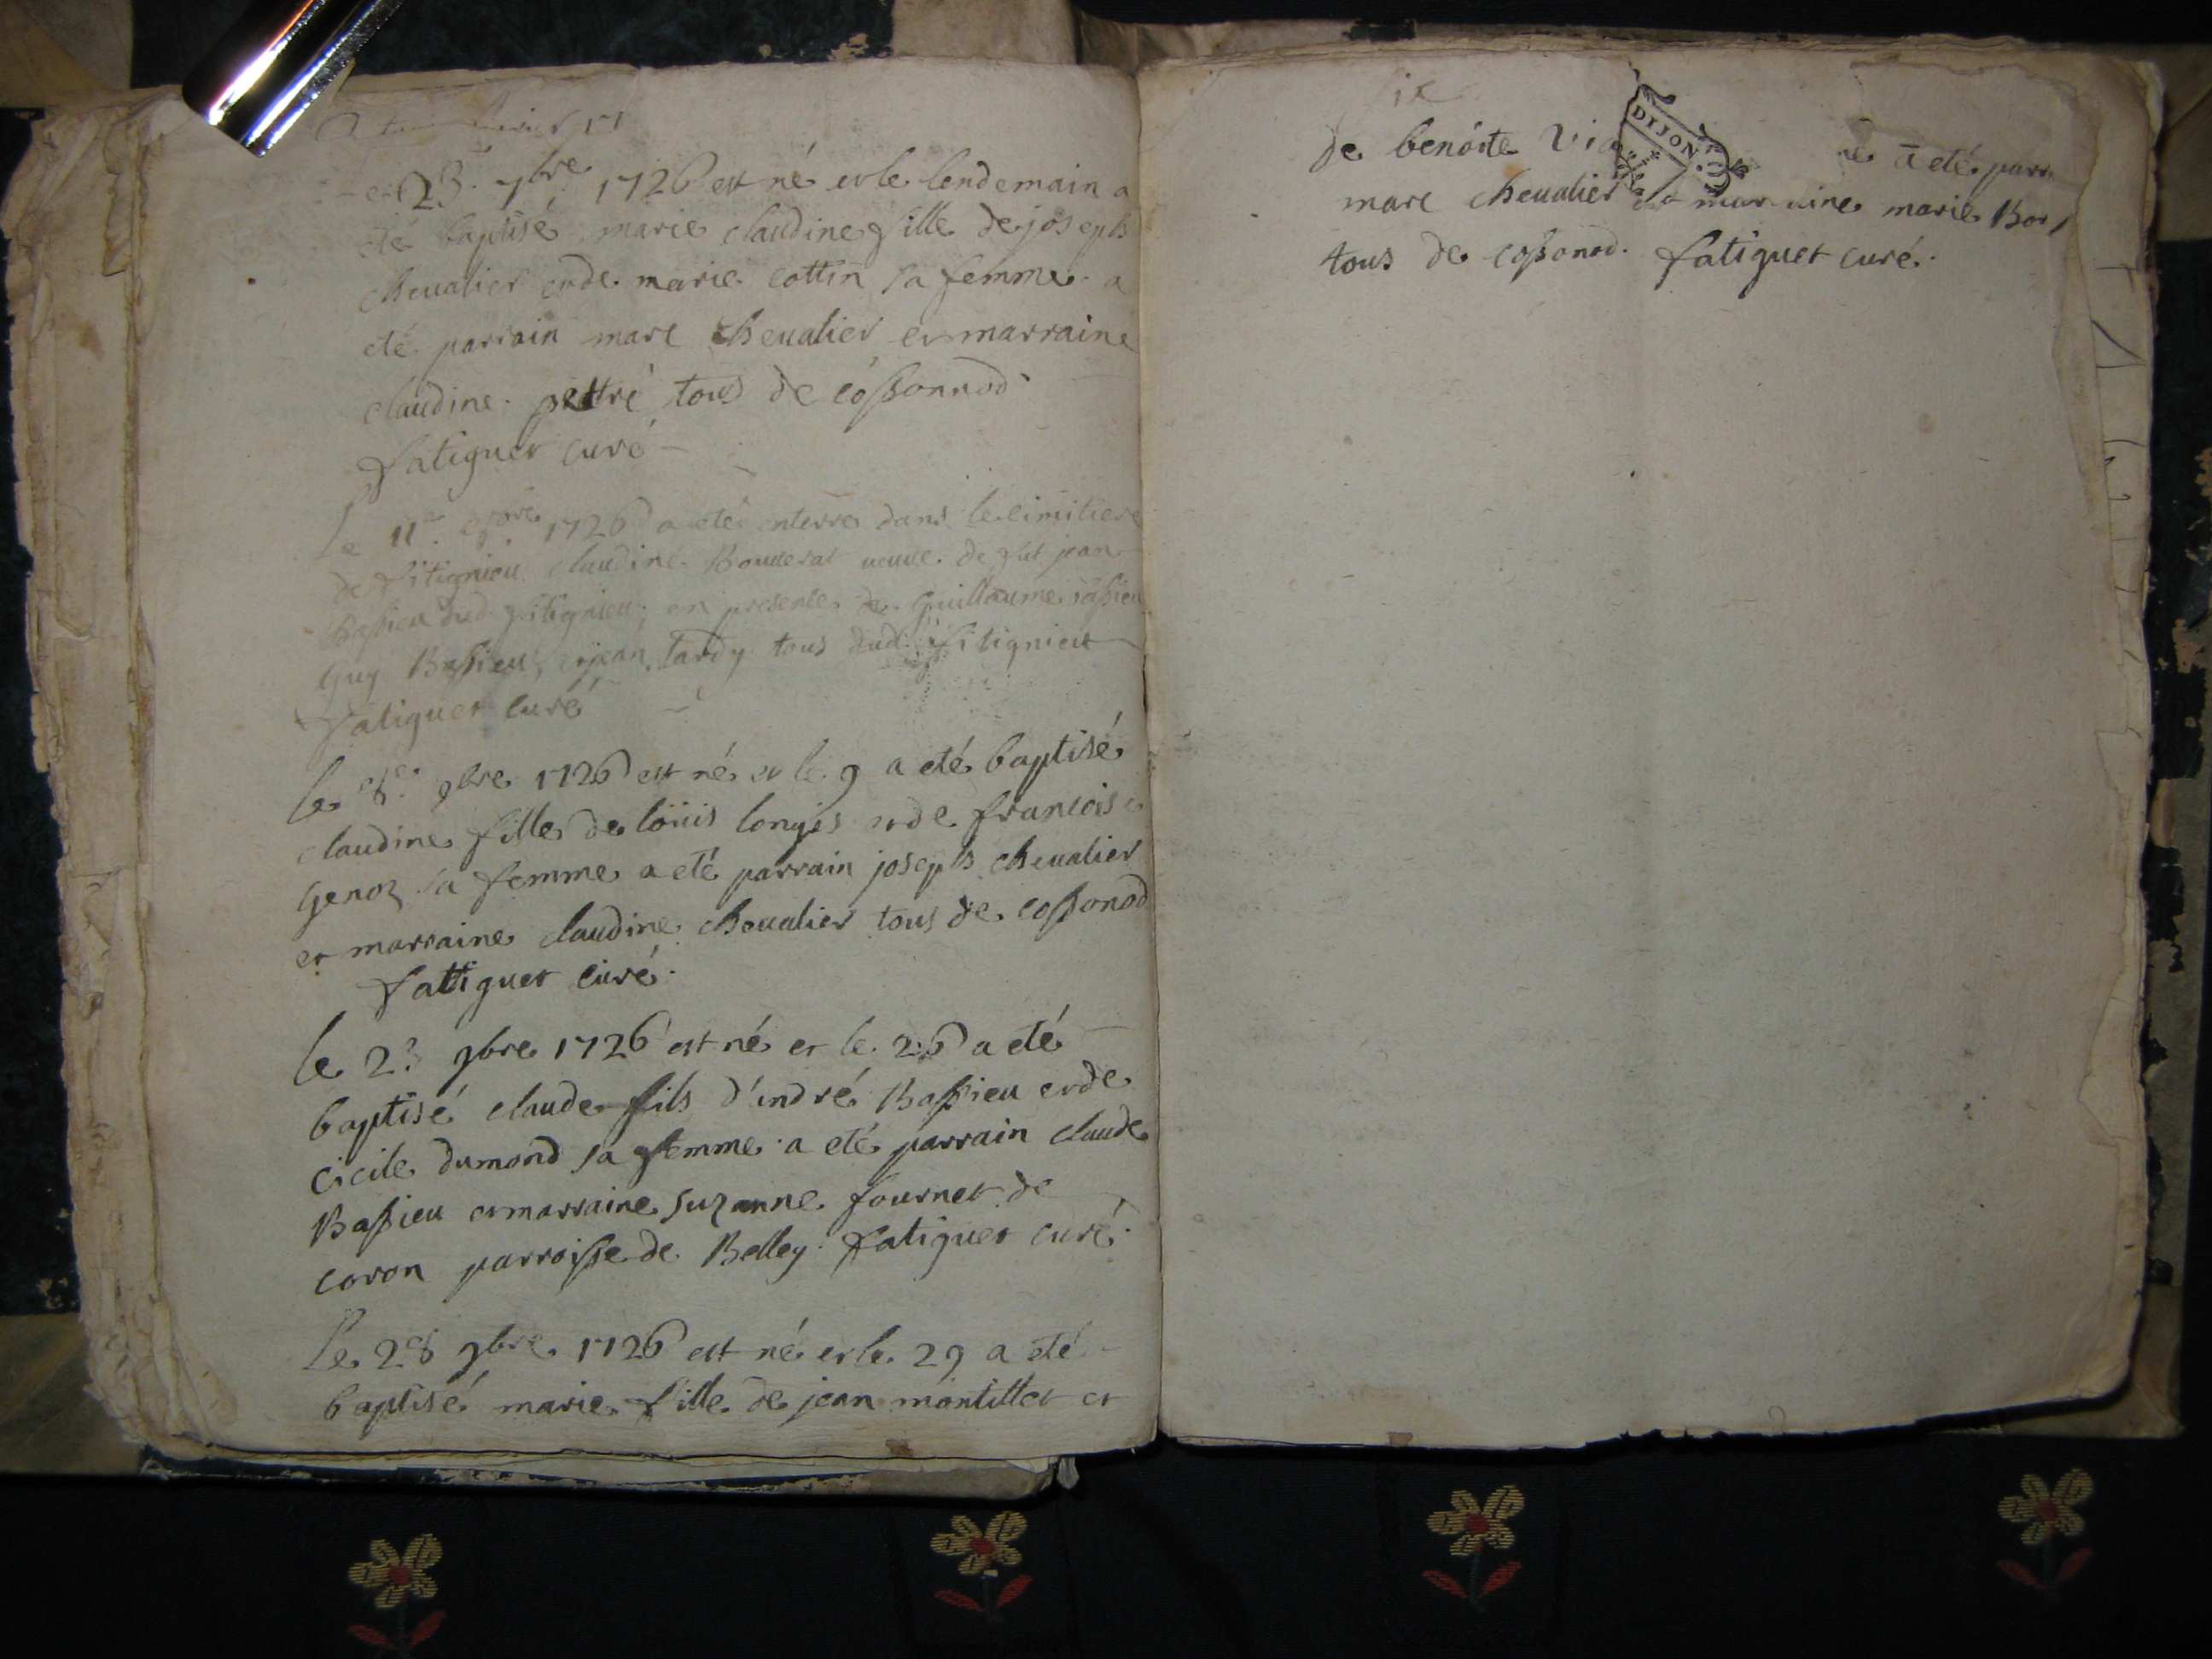 Le 23 7bre 1726 est né et le lendemain a
été baptisé marie claudine fille de joseph
chevalier et de marie cottin sa femme a
eté parrain marc chevalier et marraine
claudine pettré tous de cossonnod
fatiguet curé
Le 11e 1726 a eté enterré dans le cimitiere
de fitignieu claudine Bouuerat veuve de fut jean
Bassieu dud. fitignieu, en presence de guillaume
guy Bassieu, et jean tardy tous dud. fitignieu
fatiguet curé
le 8e 9bre 1726 est né et le 9 a eté baptisé
claudine fille de loüis longis et de francoise
genoz sa femme a eté parrain joseph chevalier
et marraine claudine chevalier tous de cossonod
fattiguet curé.
le 23 9bre 1726 est né et le 26 a eté
baptisé claude fils d'endré Bassieu et de
cicile dumond sa femme a eté parrain claude
Bassieu et marraine suzanne fournet de
coron parroisse de Belley. fatiguet curé.
Le 28 9bre 1726 est né et le 29 a eté
baptisé marie fille de jean montillet et
de benoite a eté parr
marc chevalier et marraine marie
tous de cossonod. fatiguet curé.
DIJON